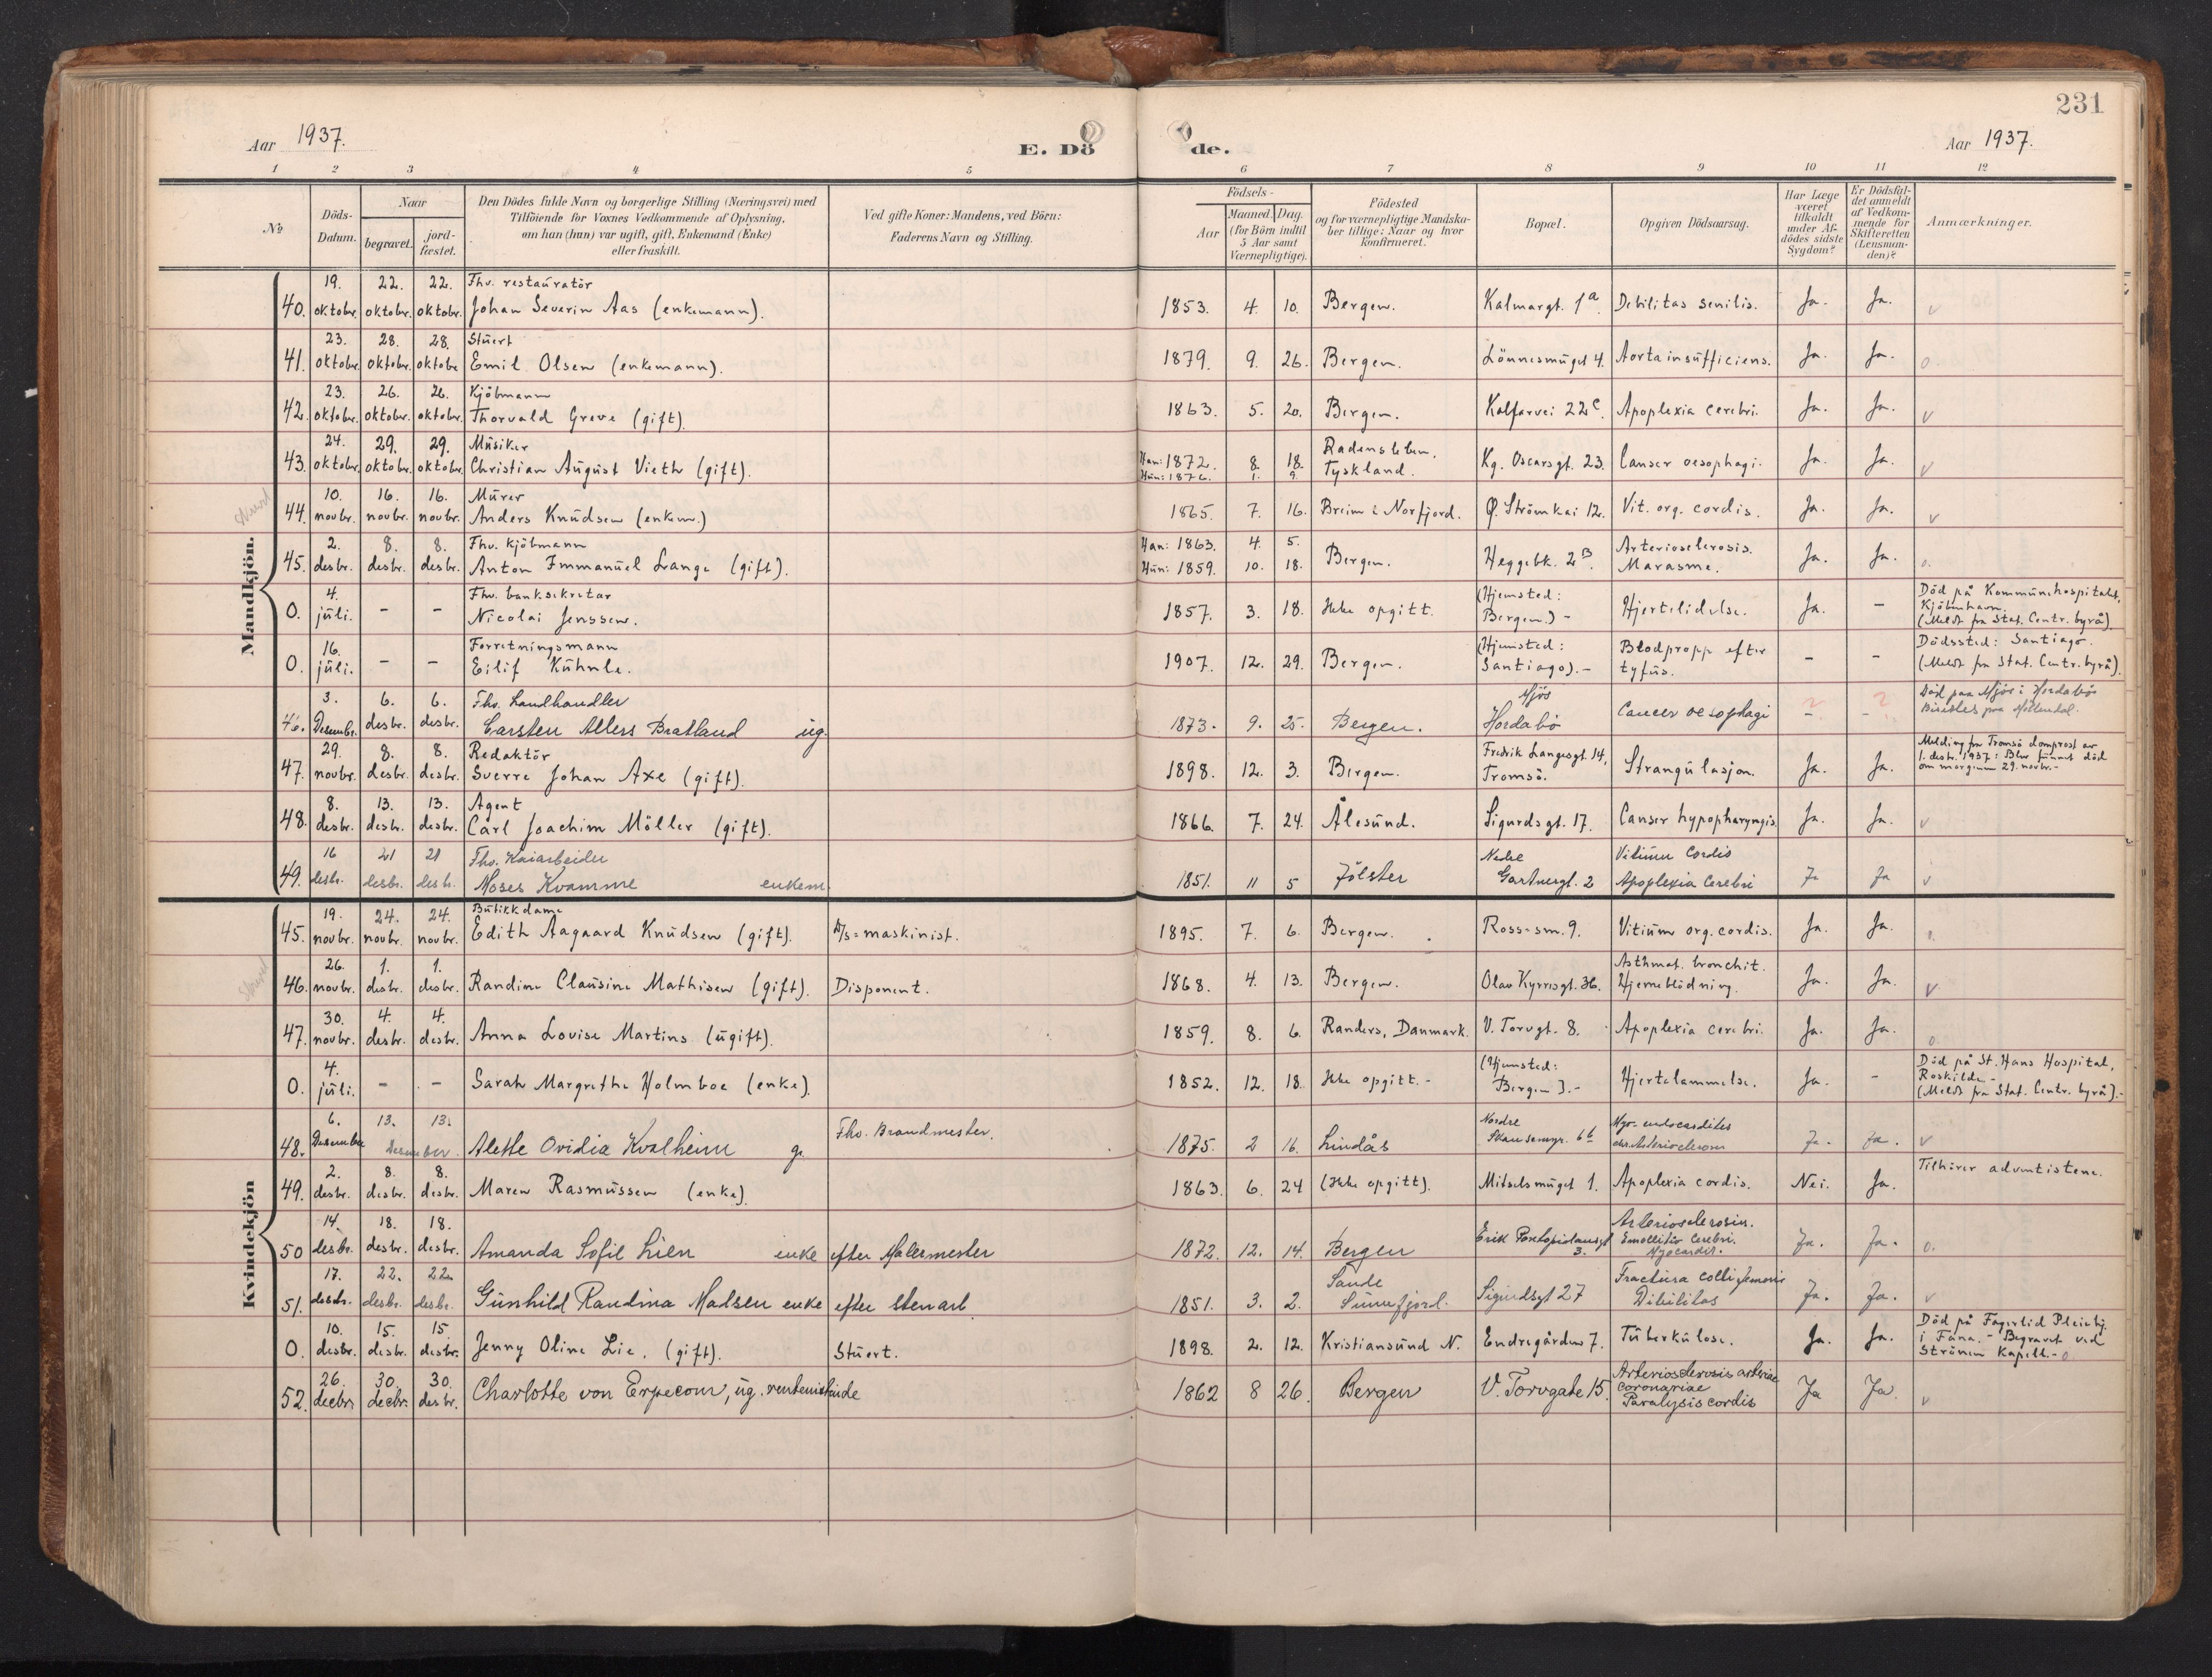 231
Aar 1937.
E. Dö de.
Aar 1937.
1 2 3 4 5 6 7 8 9 10 11 12
No
Döds-Datum.
Naar
begravet.
jord-fæstet.
Den Dödes fulde Navn og borgerlige Stilling (Næringsvei) med
Tilföiende for Voxnes Vedkommende af Oplysning,
om han (hun) var ugift, gift, Enkemand (Enke)
eller fraskilt.
Ved gifte Koner: Mandens, ved Börn:
Faderens Navn og Stilling.
Födsels-
Aar
Maaned. Dag.
(for Börn indtil
5 Aar samt
Værnepligtige).
Födested
og for værnepligtige Mandska-
ber tillige: Naar og hvor
konfirmeret.
Bopæl.
Opgiven Dödsaarsag.
Har Læge
været
tilkaldt
under Af-
dödes sidste
Sygdom?
Er Dödsfal-
det anmeldt
af Vedkom-
mende for
Skifteretten
(Lensman-
den)?
Anmærkninger.
Mandkjön.
40. 19. oktober. 22. oktober. 22. oktober. Fhv. restauratör
Johan Severin Aas (enkemann). 1853. 4. 10. Bergen. Kalmargt. 1a. Debilitas senilis. Ja. Ja. v
41. 23. oktober. 28. oktober. 28. oktobr. Stuert
Emil Olsen (enkemann). 1879. 9. 26. Bergen. Lönnesmuget 4. Aortainsufficiens. Ja. Ja. o.
42. 23. oktober. 26. oktober. 26. oktober. Kjöbmann
Thorvald Greve (gift). 1863. 5. 20. Bergen. Kalfarvei 22c. Apoplexia cerebri. Ja. Ja. v
43. 24. oktober. 29. oktober. 29. oktober. Musiker
Christian August Vieth (gift). Han: 1872. 8. 18. Radensleben, Tyskland. Kg. Oscarsgt. 23. Canser oesophagi. Ja. Ja. v
Hun: 1876. 1. 9.
44. 10. novbr. 16. novbr. 16. novbr. Murer
Anders Knudsen (enkem.) 1865. 7. 16. Breim i Norfjord. Ø. Strömkai 12. Vit. org. cordis. Ja. Ja. v
45. 2. desbr. 8. desbr. 8. desbr. Fhv. kjöbmann
Anton Immanuel Lange (gift). Han: 1863. 4. 5. Bergen. Heggebk. 2B. Arteriosclerosis. Marasme. Ja. Ja. o.
Hun: 1859. 10. 18.
0. 4. juli. - - Fhv. banksekretær
Nicolai Jenssen. 1857. 3. 18. Ikke opgitt. (Hjemsted: Bergen.) - Hjertelidelse. Ja. - Död på Kommunehospitalet,
Kjöbenhavn.
(Meldt fra Stat. Centr. byrå).
0. 16. juli. - - Forretningsmann
Eilif Kühnle. 1907. 12. 29. Bergen. (Hjemsted: Santiago). - Blodpropp efter tyfus. - - Dödssted: Santiago.
(Meldt fra Stat. Centr. byrå).
46. 3. Desembr. 6. desbr. 6. desbr. Fhv. Landhandler
Carsten Allers Bratland ug. 1873. 9. 25. Bergen. Mjös Hordabö Cancer oesophagi ? - ? - Död paa Mjös i Hordabö
Bisettes paa Möllendal.
47. 29. novbr. 8. desbr. 8. desbr. Redaktör
Sverre Johan Axe (gift). 1898. 12. 3. Bergen. Fredrik Langesgt. 14, Tromsö. Strangulasjon. Ja. Ja. Melding fra Tromsö domprost av
1. desbr. 1937: Blev funnet död
om morgenen 29. novbr. -
48. 8. desbr. 13. desbr. 13. desbr. Agent
Carl Joachim Möller (gift). 1866. 7. 24. Ålesund. Sigurdsgt. 17. Canser hypopharyngis. Ja. Ja. v
49. 16 desbr. 21 desbr. 21 desbr. Fhv. Kaiarbeider
Moses Kvamme enkem. 1851. 11 5 Jölster Nedre Gartnergt. 2 Vitium Cordis Apoplexia Cerebri Ja Ja v
Kvindekjön
45. 19. novbr. 24. novbr. 24. novbr. Butikkdame
Edith Aagaard Knudsen (gift). D/s=maskinist. 1895. 7. 6. Bergen. Rosesm. 9. Vitium org. cordis. Ja. Ja. o.
46. 26. novbr. 1. desbr. 1. desbr. Randine Clausine Mathisen (gift). Disponent. 1868. 4. 13. Bergen. Olav Kyrresgt. 36. Asthmat. bronchit. Hjerneblödning. Ja. Ja. v
47. 30. novbr. 4. desbr. 4. desbr. Anna Lovise Martins (ugift). 1859. 8. 6. Randers, Danmark. V. Torvgt. 8. Apoplexia cerebri. Ja. Ja. o.
0. 4. juli. - - Sarah Margrethe Holmboe (enke). 1852. 12. 18. Ikke opgitt. - (Hjemsted: Bergen). - Hjertelammelse. Ja. - Död på St. Hans Hospital,
Roskilde -
(Meldt fra Stat. Centr. byrå). -
48. 6. Desember 13. 13. Desember. Alette Ovidia Kvalheim g. Fhv. Brandmester. 1875. 2 16. Lindås Nordre Skansemyr. 6b Myo-endocarditis chr. Arteriosclerosis Ja. Ja. v
49. 2. desbr. 8. desbr. 8. desbr. Maren Rasmussen (enke). 1863. 6. 24 (Ikke opgitt). Mitselsmuget 1. Apoplexia cordis. Nei. Ja. Tilhörer adventistene.
50 14. desbr. 18. desbr. 18. desbr. Amanda Sofie Lien enke efter Malermester 1872. 12. 14. Bergen Erik Pontopidansgt 3. Arteriosclerosis. Emollitio Cerebri. Myocardit. Ja. Ja. o.
51. 17. desbr. 22. desbr. 22. desbr. Gunhild Randina Madsen enke efter stenarb. 1851. 3. 2. Sande Sunnfjord. Sigurdsgt 27 Fractura colli femoris Debilitas Ja. Ja. v
0. 10. desbr. 15. desbr. 15. desbr. Jenny Oline Lie. (gift). Stuert. 1898. 2. 12. Kristiansund N. Endregården 7. Tuberkulose. Ja. Ja. Död på Fagerlid Pleiehj.
i Fana. - Begravet ved
Strönen Kapell. - o.
52. 26. decbr. 30. decbr. 30. desbr. Charlotte von Erpecom, ug. rentenistinde 1862 8 26. Bergen V. Torvgate 15. Arteriosclerosis arteriae coronariae Paralysis cordis Ja Ja. v